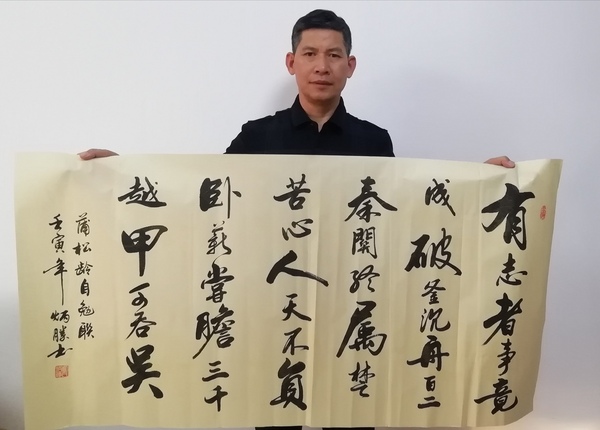 有志者事竟
成破釜沉舟百二
秦關终属楚
苦心人天不負
卧薪嘗膽三千
越甲可吞吴
蒲松龄自勉联
壬寅年炳勝书